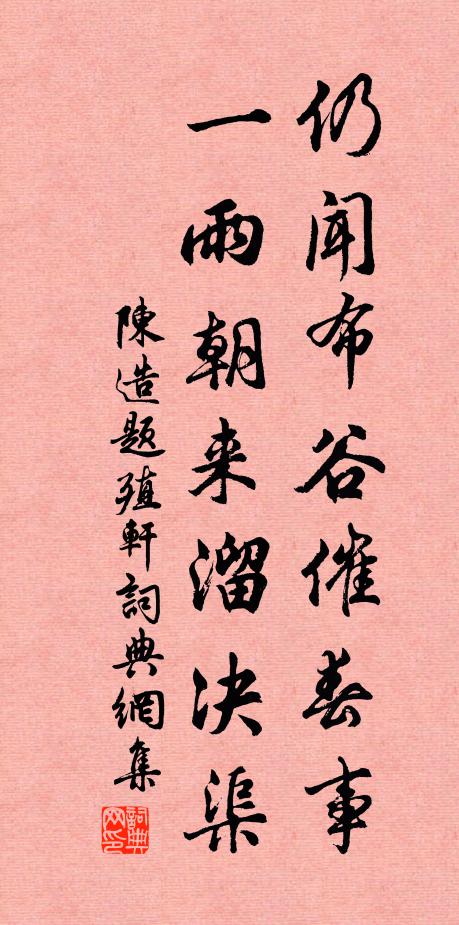 仍聞布谷催春事
一雨朝来溜決渠
陳造題殖軒詞典網集
詞典网印